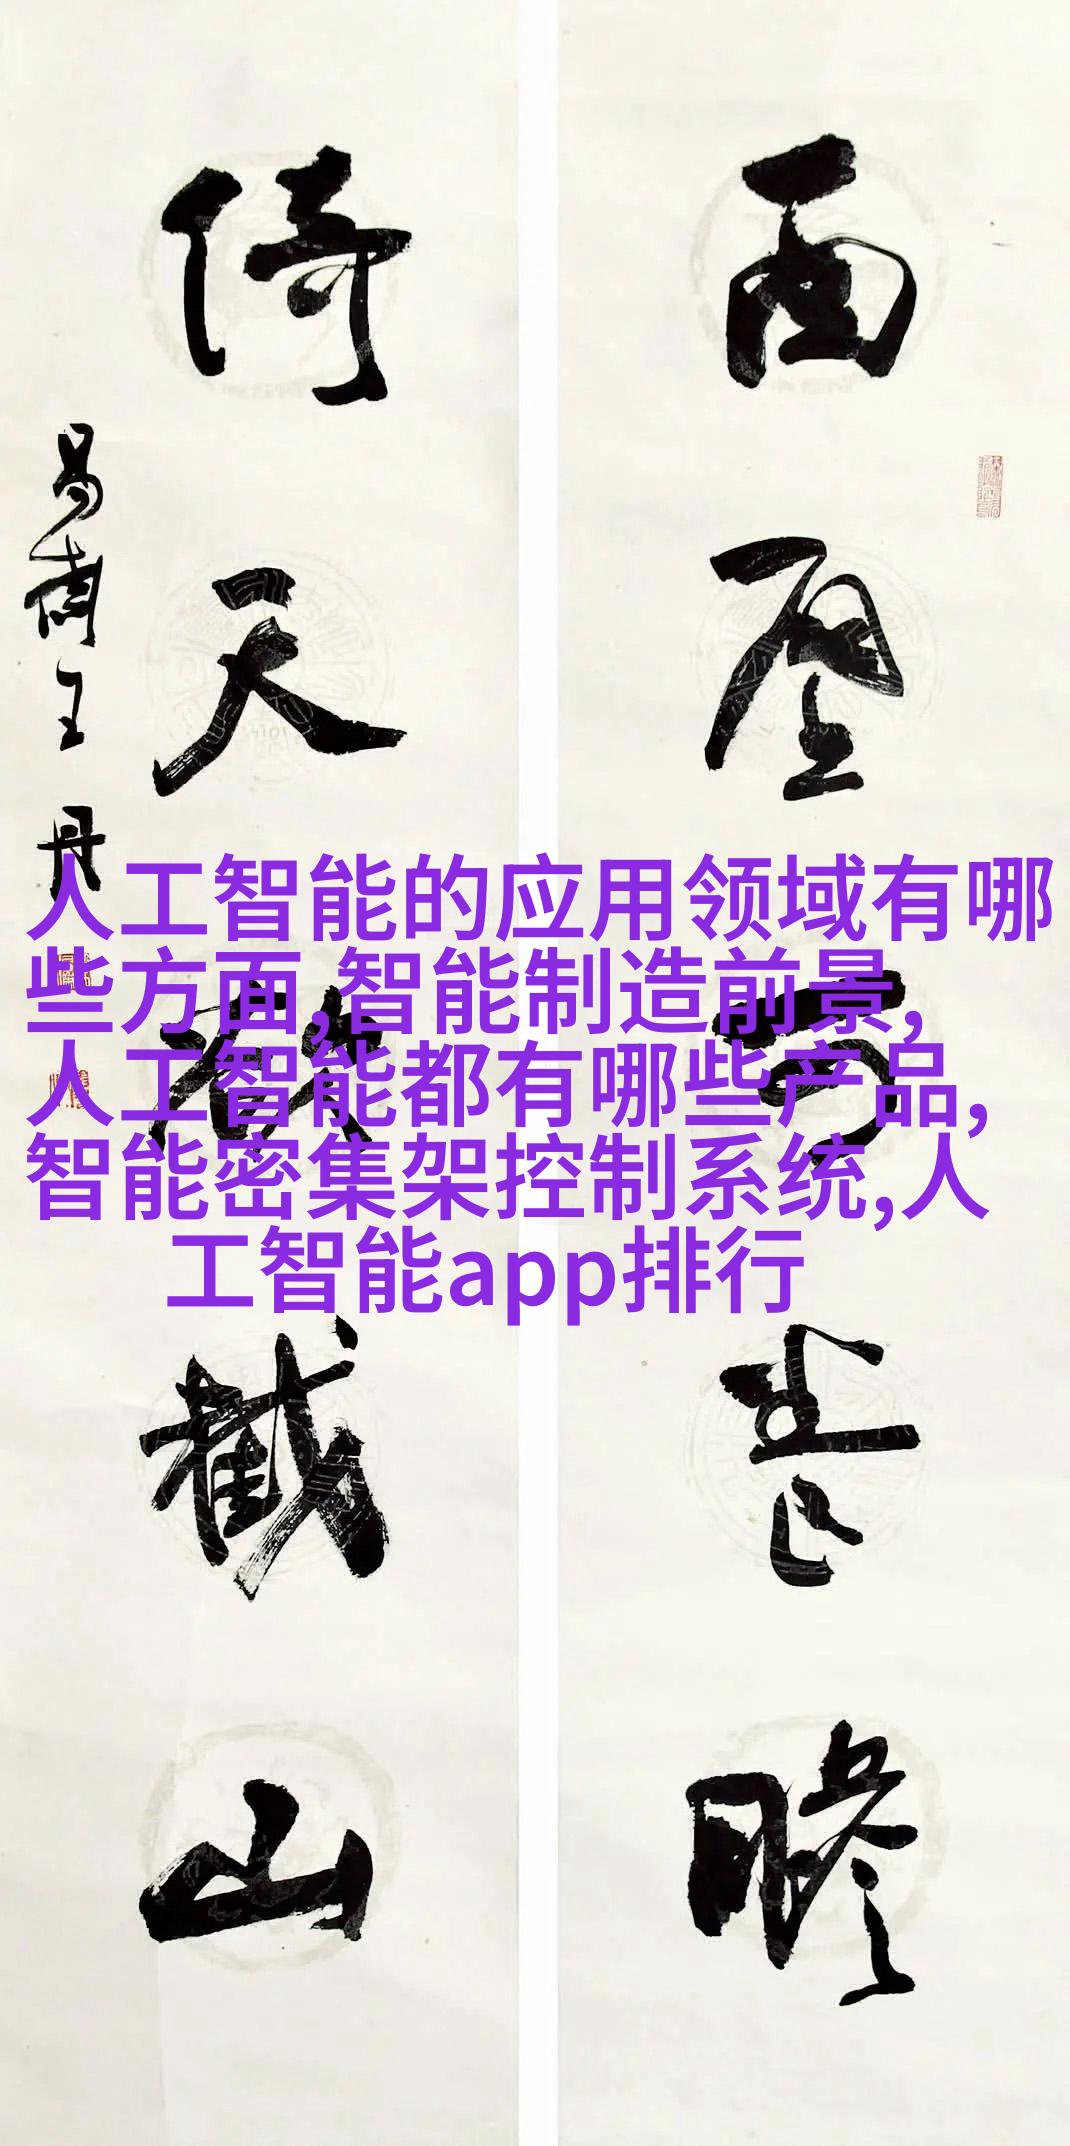 人工智能的应用领域有哪
些方面,智能制造前景,
人工智能都有哪些产品,
智能密集架控制系统,人
工智能app排行
西壁
倚天欲截山
王丹